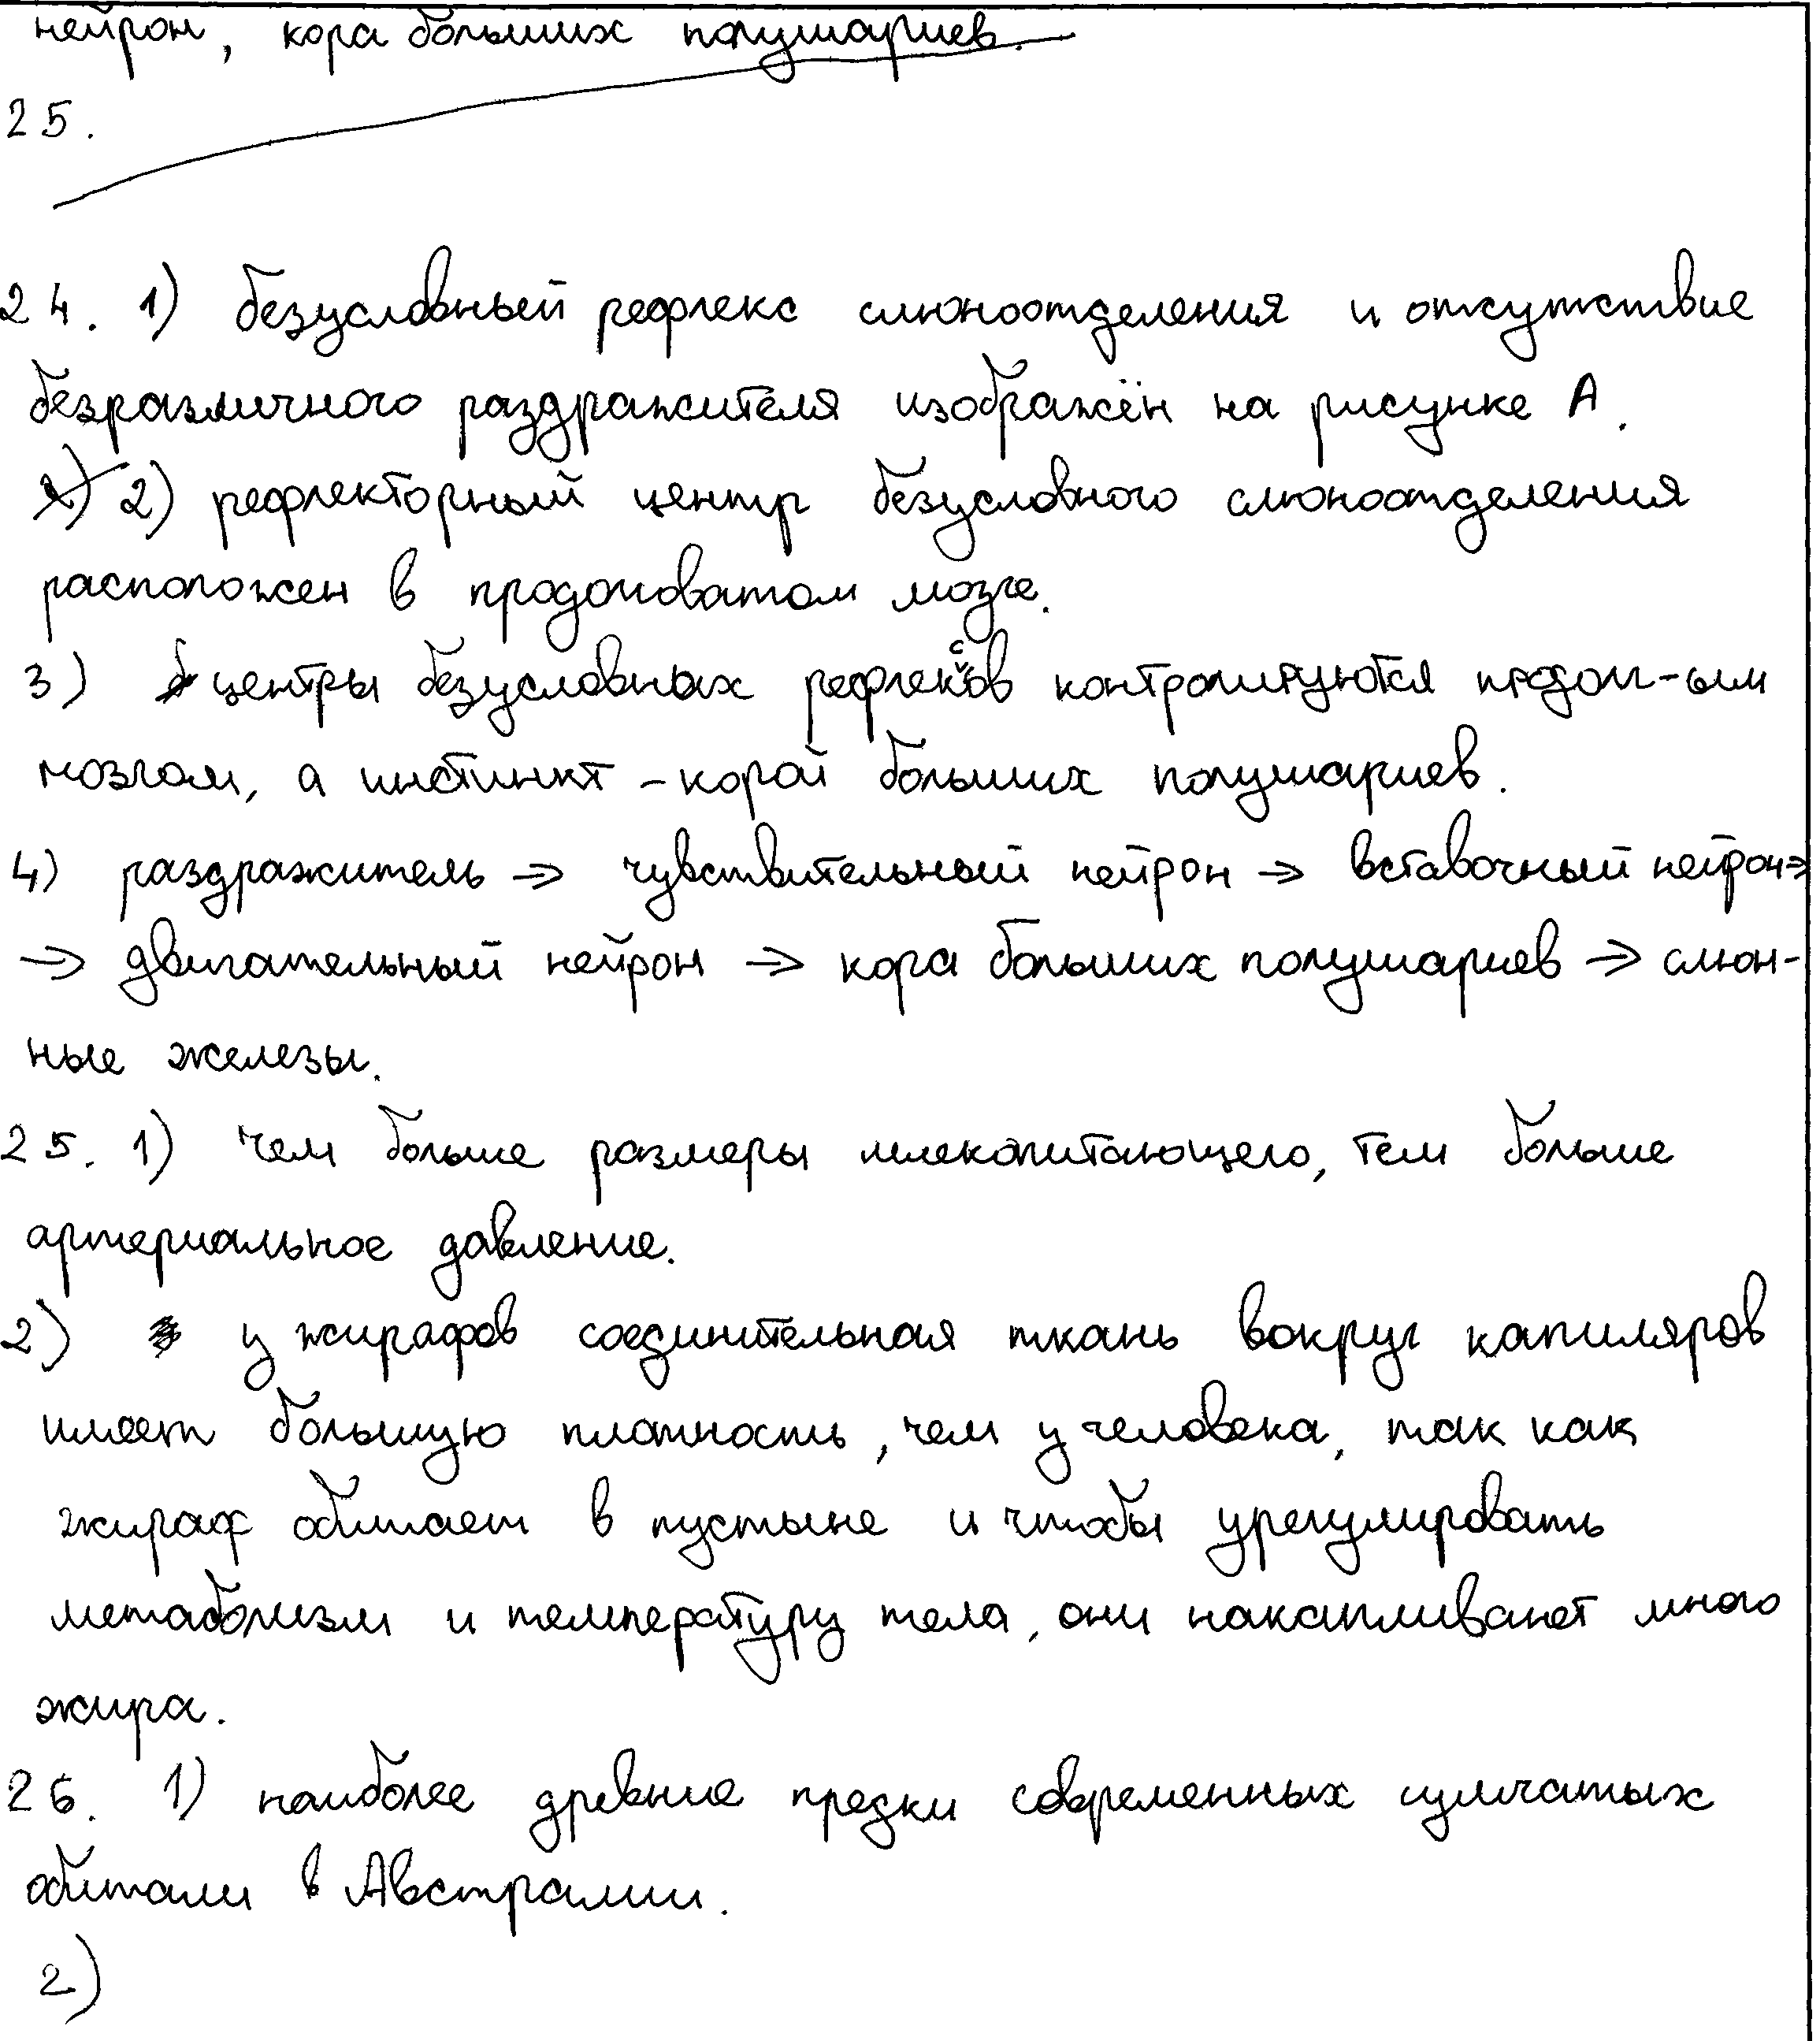 нейрон, кора больших полушариев.
25.
24. 1) безусловный рефлекс слюноотделения и отсутствие
безразличного раздражителя изображён на рисунке А.
2) 2) рефлекторный центр безусловного слюноотделения
расположен в продолговатом мозге.
3) центры безусловных рефлексов контролируются продол-ым
мозгом, а инстинкт - корой больших полушариев.
4) раздражитель → чувствительный нейрон → вставочный нейрон→
→ двигательный нейрон → кора больших полушариев → слюн-
ные железы.
25. 1) чем больше размеры млекопитающего, тем больше
артериальное давление.
2) у жирафов соединительная ткань вокруг капиляров
имеет большую плотность, чем у человека, так как
жираф обитает в пустыне и чтобы урегулировать
метаболизм и температуру тела, они накапливают много
жира.
26. 1) наиболее древние предки современных сумчатых
обитали в Австралии.
2)